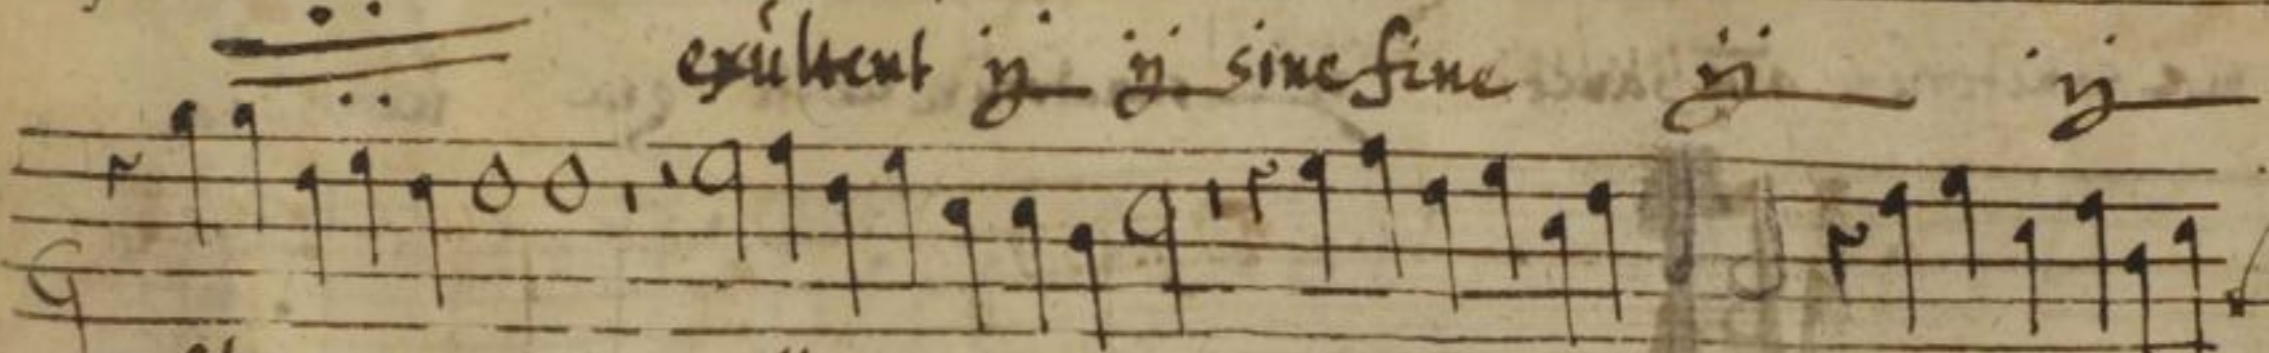 exultent ij ij sine fine ij ij